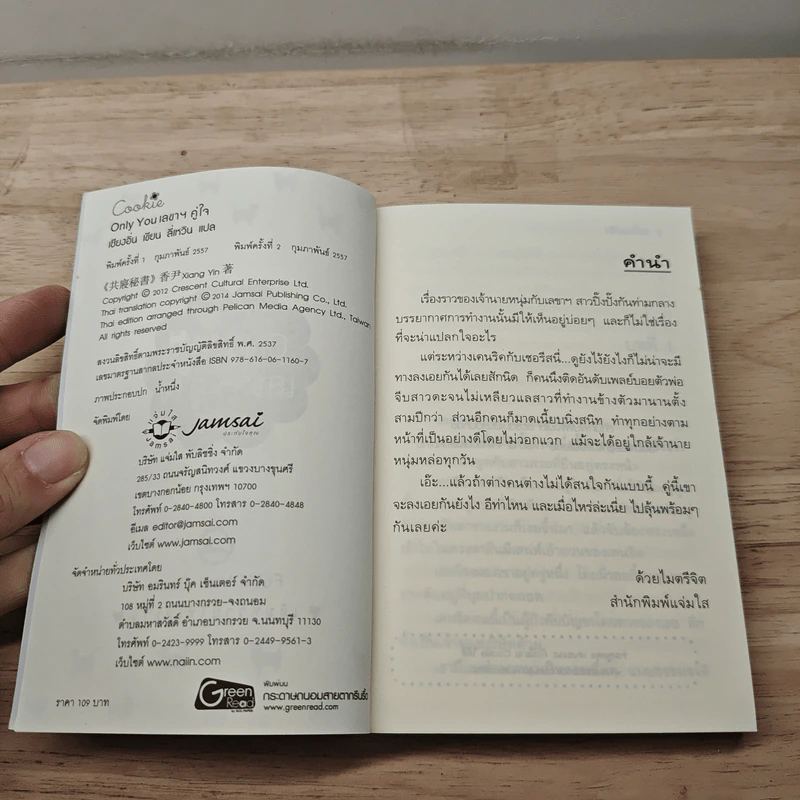 Cookie
Only You เลขาฯ คู่ใจ
เซียงอิ่น เขียน ลี่เหวิน แปล
พิมพ์ครั้งที่ 1 กุมภาพันธ์ 2557 พิมพ์ครั้งที่ 2 กุมภาพันธ์ 2557
《共寢秘書》香尹 Xiang Yin 著
Copyright © 2012 Crescent Cultural Enterprise Ltd.
Thai translation copyright © 2014 Jamsai Publishing Co., Ltd.
Thai edition arranged through Pelican Media Agency Ltd., Taiwan
All rights reserved
สงวนลิขสิทธิ์ตามพระราชบัญญัติลิขสิทธิ์ พ.ศ. 2537
เลขมาตรฐานสากลประจำหนังสือ ISBN 978-616-06-1160-7
ภาพประกอบปก น้ำหนึ่ง
จัดพิมพ์โดย
แจ่มใส
Jamsai
jamsai
บริษัท แจ่มใส พับลิชชิ่ง จำกัด
285/33 ถนนจรัญสนิทวงศ์ แขวงบางขุนศรี
เขตบางกอกน้อย กรุงเทพฯ 10700
โทรศัพท์ 0-2840-4800 โทรสาร 0-2840-4848
อีเมล editor@jamsai.com
เว็บไซต์ www.jamsai.com
จัดจำหน่ายทั่วประเทศโดย
บริษัท อมรินทร์ บุ๊ค เซ็นเตอร์ จำกัด
108 หมู่ที่ 2 ถนนบางกรวย-จงถนอม
ตำบลมหาสวัสดิ์ อำเภอบางกรวย จ.นนทบุรี 11130
โทรศัพท์ 0-2423-9999 โทรสาร 0-2449-9561-3
เว็บไซต์ www.naiin.com
ราคา 109 บาท
Green Read
พิมพ์บน
กระดาษถนอมสายตากรีนรี้ด
www.greenread.com
คำนำ
เรื่องราวของเจ้านายหนุ่มกับเลขาฯ สาวปิ๊งปั๊งกันท่ามกลาง
บรรยากาศการทำงานนั้นมีให้เห็นอยู่บ่อยๆ และก็ไม่ใช่เรื่อง
ที่จะน่าแปลกใจอะไร
แต่ระหว่างเคนริคกับเชอรีสนี่...ดูยังไงยังไงก็ไม่น่าจะมี
ทางลงเอยกันได้เลยสักนิด ก็คนนึงติดอันดับเพลย์บอยตัวพ่อ
จีบสาวดะจนไม่เหลียวแลสาวที่ทำงานข้างตัวมานานตั้ง
สามปีกว่า ส่วนอีกคนก็มาดเนี้ยบนิ่งสนิท ทำทุกอย่างตาม
หน้าที่เป็นอย่างดีโดยไม่วอกแวก แม้จะได้อยู่ใกล้เจ้านาย
หนุ่มหล่อทุกวัน
เอ๊ะ...แล้วถ้าต่างคนต่างไม่ได้สนใจกันแบบนี้ คู่นี้เขา
จะลงเอยกันยังไง อีท่าไหน และเมื่อไหร่ล่ะเนี่ย ไปลุ้นพร้อมๆ
กันเลยค่ะ
ด้วยไมตรีจิต
สำนักพิมพ์แจ่มใส